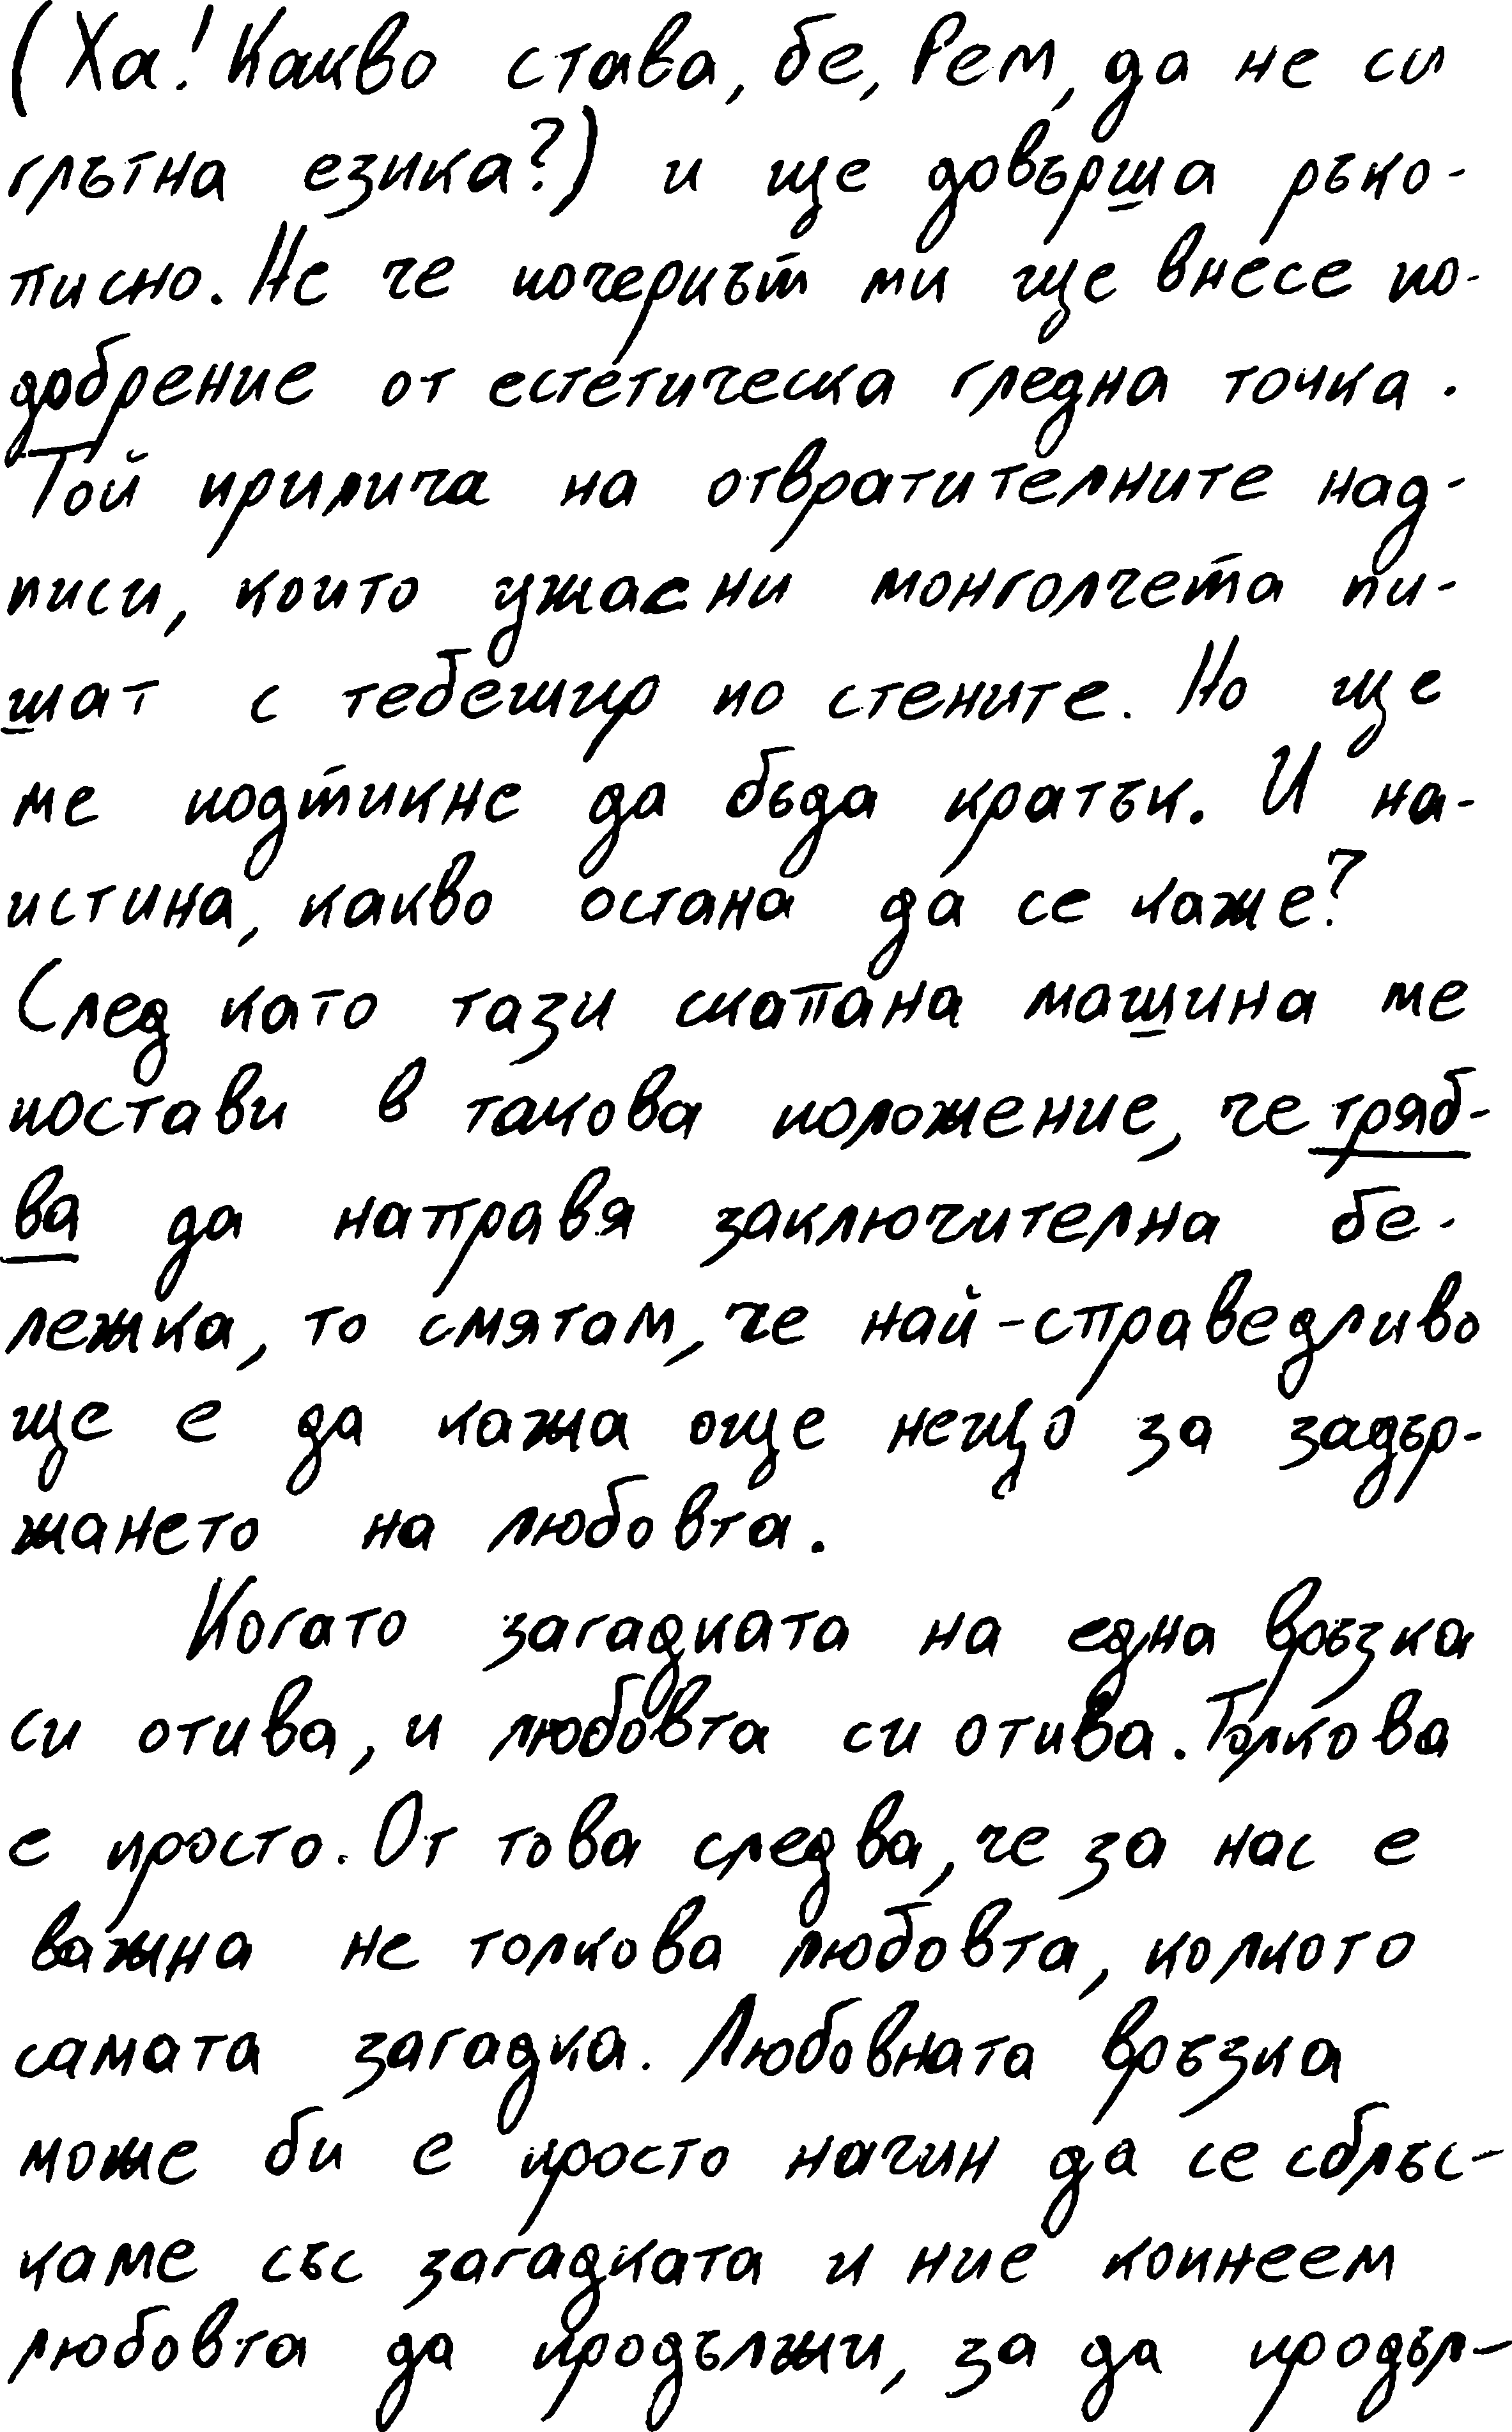 (Ха! Какво става, бе, Рем, да не си
глътна езика?) и ще довърша ръко-
писно. Не че почеркът ми ще внесе по-
добрение от естетическа гледна точка.
Той прилича на отвратителните над-
писи, които ужасни монголчета пи-
шат с тебешир по стените. Но ще
ме подтикне да бъда кратък. И на-
истина, какво остана да се каже?
След като тази скапана машина ме
постави в такова положение, че тряб-
ва да направя заключителна бе-
лежка, то смятам, че най-справедливо
ще е да кажа още нещо за задър-
жането на любовта.
Когато загадката на една връзка
си отива, и любовта си отива. Толкова
е просто. От това следва, че за нас е
важна не толкова любовта, колкото
самата загадка. Любовната връзка
може би е просто начин да се сблъс-
каме със загадката и ние копнеем
любовта да продължи, за да продъл-